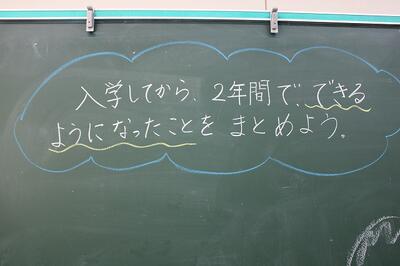 入学してから、2年間で、できる
ようになったことを まとめよう。